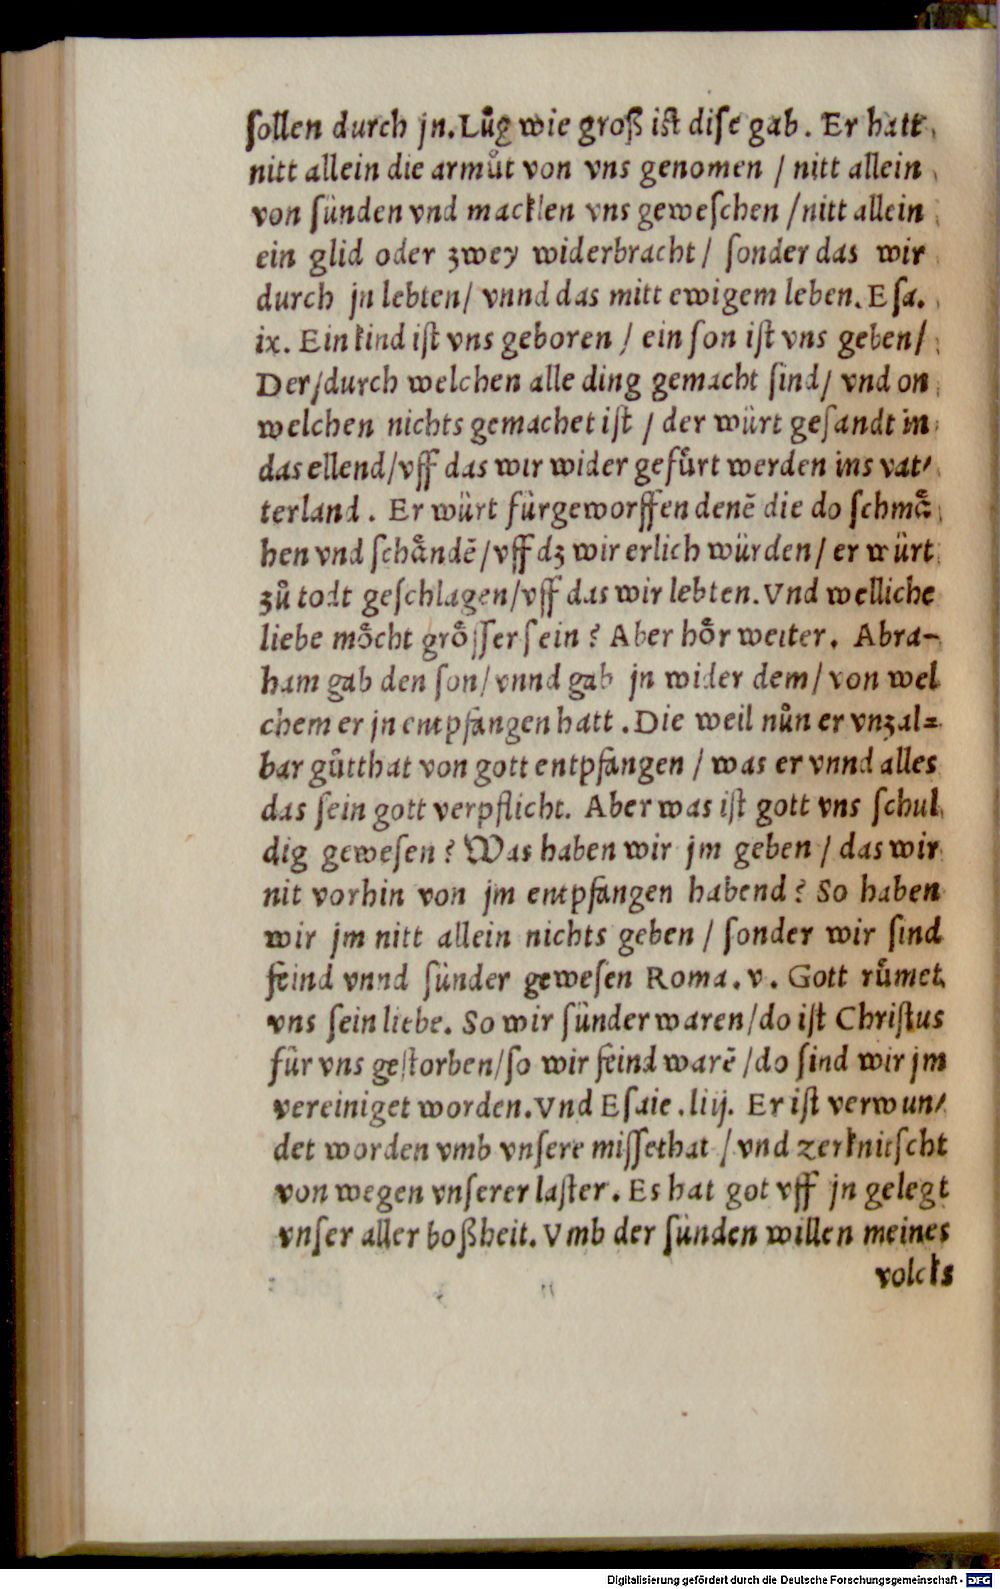 ſollen durch jn. Lůg wie groß iſt diſe gab. Er hatt
nitt allein die armůt von vns genomen / nitt allein
von ſünden vnd macklen vns geweſchen / nitt allein
ein glid oder zwey widerbracht / ſonder das wir
durch jn lebten / vnnd das mitt ewigem leben. Eſa.
ix. Ein kind iſt vns geboren / ein ſon iſt vns geben /
Der / durch welchen alle ding gemacht ſind / vnd on
welchen nichts gemachet iſt / der würt geſandt in
das ellend / vff das wir wider gefuͤrt werden ins vat⸗
terland. Er würt fürgeworffen denē die do ſchmaͤ
hen vnd ſchaͤndē / vff dz wir erlich würden / er würt
zů todt geſchlagen / vff das wir lebten. Vnd welliche
liebe moͤcht groͤſſer ſein? Aber hoͤr weiter. Abra⸗
ham gab den ſon / vnnd gab jn wider dem / von wel
chem er jn empfangen hatt. Die weil nůn er vnzal⸗
bar gůtthat von gott entpfangen / was er vnnd alles
das ſein gott verpflicht. Aber was iſt gott vns ſchul
dig geweſen? Was haben wir jm geben / das wir
nit vorhin von jm empfangen habend? So haben
wir jm nitt allein nichts geben / ſonder wir ſind
feind vnnd ſünder geweſen Roma. v. Gott ruͤmet
vns ſein liebe. So wir ſünder waren / do iſt Chriſtus
für vns geſtorben / ſo wir feind warē / do ſind wir jm
vereiniget worden. Vnd Eſaie. liij. Er iſt verwun⸗
det worden vmb vnſere miſſethat / vnd zerknitſcht
von wegen vnſerer laſter. Es hat got vff jn gelegt
vnſer aller boßheit. Vmb der ſünden willen meines
volcks
Digitalisierung gefördert durch die Deutsche Forschungsgemeinschaft - DFG